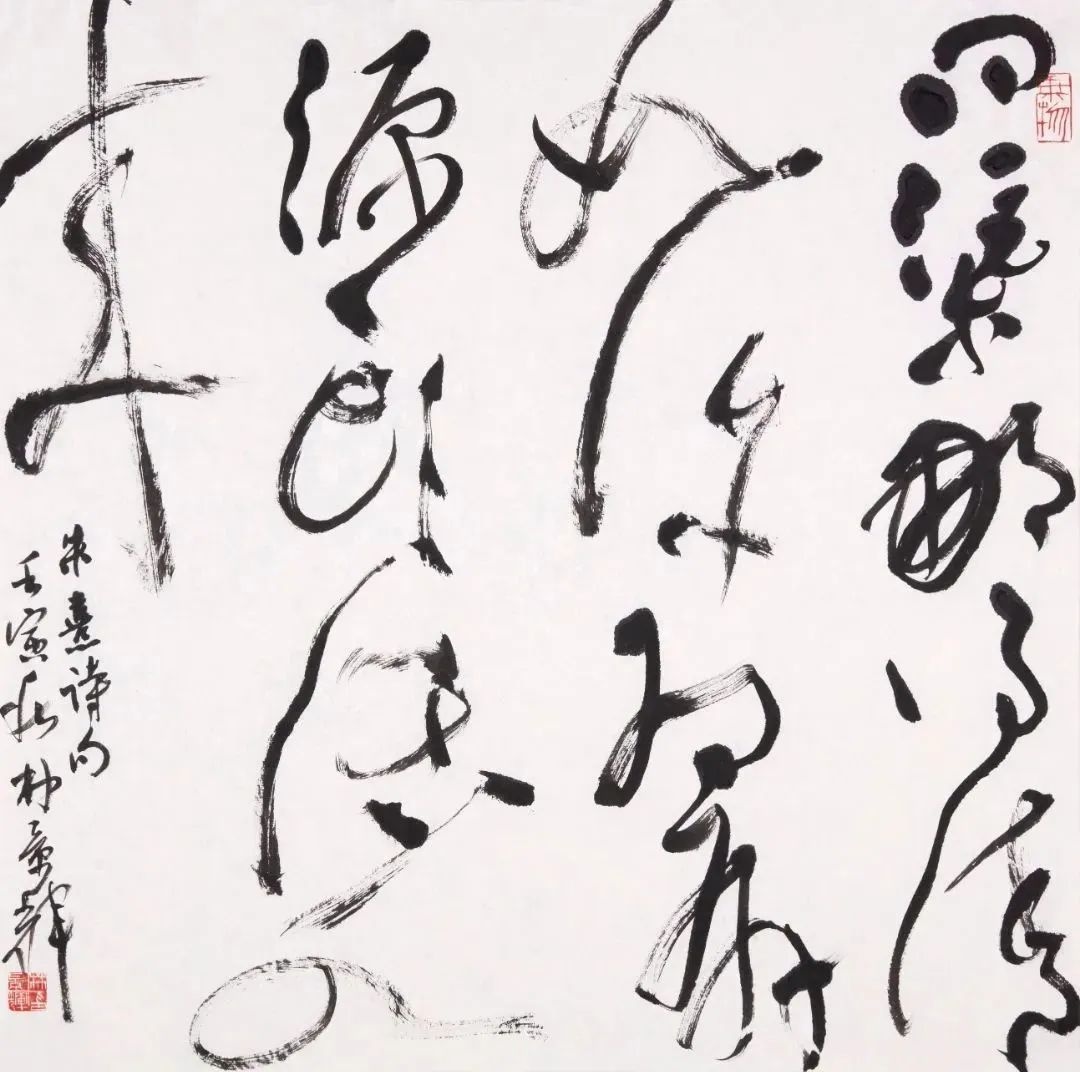 問渠那得清
如許為有
源頭活水
來
朱熹詩句
壬寅秋林景輝